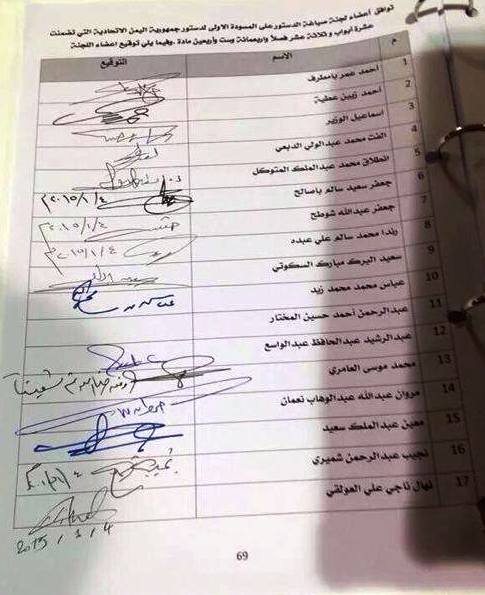 توافق أعضاء لجنة صياغة الدستور على المسودة الاولى لدستور جمهورية اليمن الاتحادية التي تضمنت
عشرة أبواب وثلاثة عشر فصلاً واربعمائة وست وأربعين مادة. وفيما يلي توقيع اعضاء اللجنة
م الاسم التوقيع
1 أحمد عمر بامطرف
2 أحمد زبين عطية
3 اسماعيل الوزير
4 الفت محمد عبدالولي الدبعي
5 انطلاق محمد عبدالملك المتوكل
6 جعفر سعيد سالم باصالح ٢٠١٥/١/٤م
7 جعفر عبدالله شوطح ٢٠١٥/١/٤م
8 رندا محمد سالم علي عبده ٢٠١٥/١/٤م
9 سعيد البرك مبارك السكوتي
10 عباس محمد محمد زيد
11 عبدالرحمن أحمد حسين المختار
12 عبدالرشيد عبدالحافظ عبدالواسع
13 محمد موسى العامري
14 مروان عبدالله عبدالوهاب نعمان
15 معين عبدالملك سعيد
16 نجيب عبدالرحمن شميري
17 نهال ناجي علي العولقي
2015/1/4
69